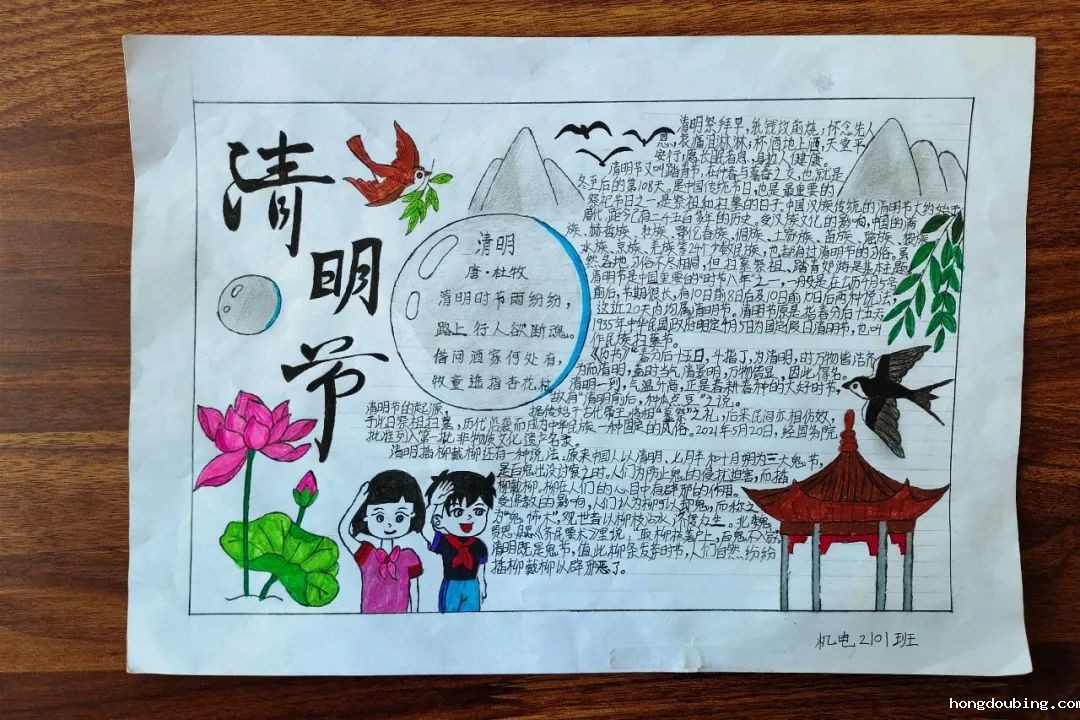 清明节
清明
唐·杜牧
清明时节雨纷纷，
路上行人欲断魂。
借问酒家何处有，
牧童遥指杏花村
清明祭拜早，纸钱坟前烧；怀念先人
恩，哀痛泪淋淋；杯酒地上洒，天堂平
安行；
清明节又叫踏青节，在仲春与暮春之交，也就是
冬至后的第108天，是中国传统节日，也是最重要的
祭祀节日之一，是祭祖和扫墓的日子，中国汉族传统的清明节大约始于
周代，距今已有二千五百多年的历史。受汉族文化的影响，中国的满
族、赫哲族、壮族、鄂伦春族、侗族、土家族、苗族、瑶族、黎族、
水族、京族、羌族等24个少数民族，也都有过清明节的习俗。虽
然各地习俗不尽相同，但扫墓祭祖、踏青郊游是基本主题
清明节是中国重要的“时节八年”之一，一般是在公历4月5号
前后，节期很长，有10日前8日后及10日前10日后两种说法，
这近20天内均属清明节。清明节原是指春分后十五天
1935年中华民国政府明定4月5日为国定假日清明节，也叫
作民族扫墓节。
《历书》“春分后十五日，斗指丁，为清明，时万物皆洁齐
而清明，盖时当气清景明，万物皆显，因此得名。
清明一到，气温升高，正是春耕春种的大好时节，
故有“清明前后，种瓜点豆”之说。
清明节的起源，
据传始于古代帝王将相“墓祭”之礼，后来民间亦相仿效，
于此日祭祖扫墓，历代沿袭而成为中华民族一种固定的风俗。2021年5月20日，经国务院
批准列入第一批非物质文化遗产名录。
清明插柳戴柳还有一种说法：原来中国人以清明、七月半和十月朔为三大鬼节，
是百鬼出没讨索之时。人们为防止鬼的侵扰迫害，而插
柳戴柳。柳在人们的心目中有辟邪的作用。
受佛教的影响，人们认为柳可以却鬼，而称之
为“鬼怖木”，观世音以柳枝沾水济度众生。北魏
贾思勰《齐民要术》里说：“取柳枝著户上，百鬼不入家
清明既是鬼节，值此柳条发芽时节，人们自然纷纷
插柳戴柳以辟邪了。
机电2101班
hongdoubing.com